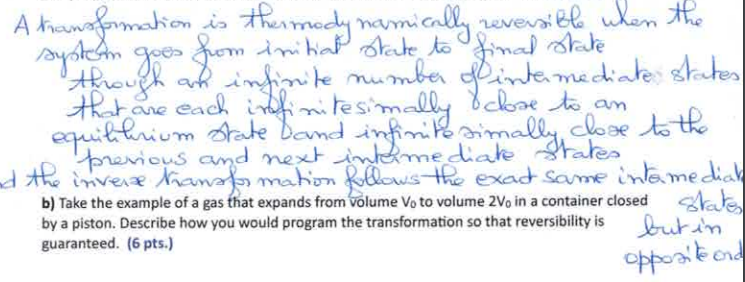 A transformation is thermodynamically reversible when the
system goes from initial state to final state
through an infinite number of intermediate states
that are each infinitesimally close to an
equilibrium state and infinitesimally close to the
previous and next intermediate states
d the inverse transformation follows the exact same intermediate
states
but in
opposite ord
b) Take the example of a gas that expands from volume V₀ to volume 2V₀ in a container closed
by a piston. Describe how you would program the transformation so that reversibility is
guaranteed. (6 pts.)